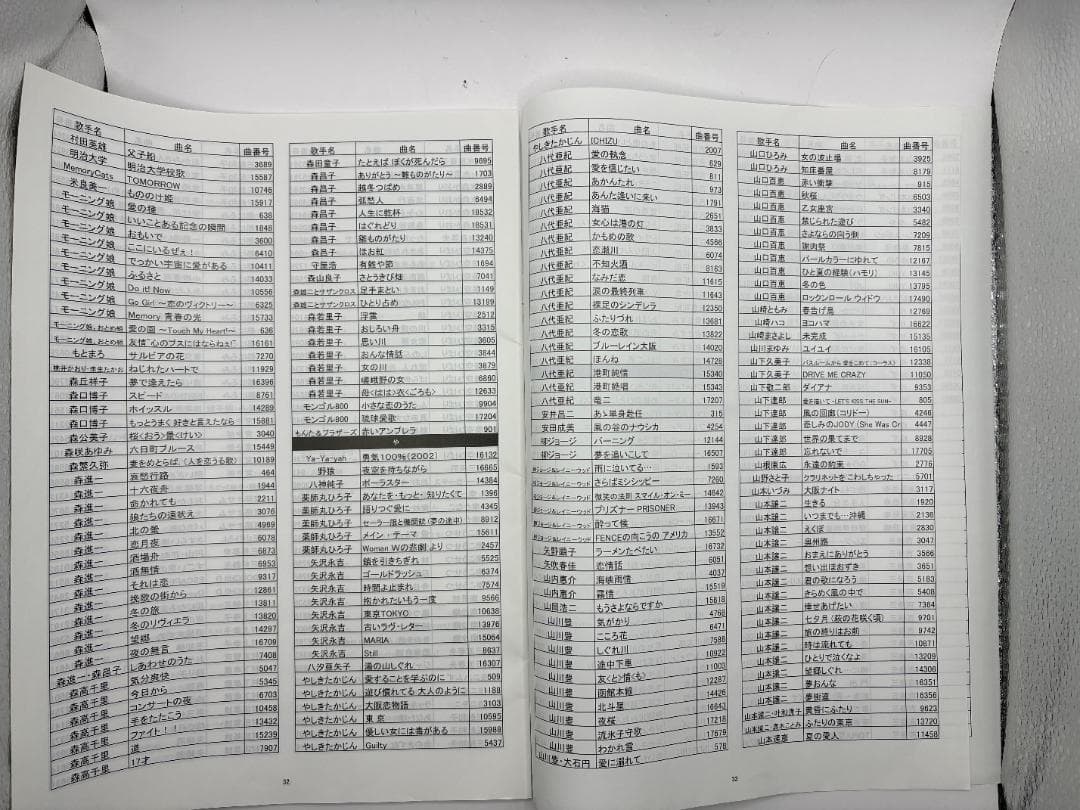 歌手名 曲名 曲番号
村田英雄 父子船 3689
明治大学 明治大学校歌 15587
MemoryCats TOMORROW 10746
米良美一 もののけ姫 15917
モーニング娘 愛の種 638
モーニング娘 いいことある記念の瞬間 1848
モーニング娘 おもいで 3600
モーニング娘 ここにいるぜぇ! 6410
モーニング娘 でっかい宇宙に愛がある 10411
モーニング娘 ふるさと 14033
モーニング娘 Do it! Now 10556
モーニング娘 Go Girl ~恋のヴィクトリー~ 6325
モーニング娘 Memory 青春の光 15733
モーニング娘。おとめ組 愛の園 ~Touch My Heart!~ 636
モーニング娘。おとめ組 友情~心のブスにはならねぇ!~ 16161
もとまろ サルビアの花 7270
桃井かおり・来生たかお ねじれたハートで 11929
森丘祥子 夢で逢えたら 16396
森口博子 スピード 8761
森口博子 ホイッスル 14289
森口博子 もっとうまく好きと言えたなら 15881
森公美子 桜<おう>景<けい> 3040
森咲あゆみ 六日町ブルース 15449
森繁久弥 妻をめとらば、(人を恋うる歌) 10189
森進一 哀愁行路 464
森進一 十六夜舟 1944
森進一 命かれても 2211
森進一 狼たちの遠吠え 3076
森進一 北の螢 4969
森進一 恋月夜 6078
森進一 酒場舟 6873
森進一 酒無情 6953
森進一 それは恋 9317
森進一 挽歌の街から 12861
森進一 冬の旅 13811
森進一 冬のリヴィエラ 13820
森進一 望郷 14297
森進一 夜の無言 16709
森進一・森昌子 しあわせのうた 7408
森高千里 気分爽快 5047
森高千里 今日から 5345
森高千里 コンサートの夜 6703
森高千里 手をたたこう 10458
森高千里 ファイト!! 13432
森高千里 道 15239
森高千里 17才 7907
歌手名 曲名 曲番号
森田童子 たとえば ぼくが死んだら 9695
森昌子 ありがとう ~雛ものがたり~ 1703
森昌子 越冬つばめ 2889
森昌子 孤愁人 6494
森昌子 人生に乾杯 18532
森昌子 はぐれどり 18531
森昌子 雛ものがたり 13240
森昌子 ほお紅 14375
守屋浩 有難や節 1694
森山良子 さとうきび畑 7041
森雄二とサザンクロス 足手まとい 1149
森雄二とサザンクロス ひとり占め 13189
森若里子 浮雲 2512
森若里子 おしろい舟 3315
森若里子 思い川 3605
森若里子 おんな情話 3844
森若里子 女の川 3879
森若里子 嵯峨野の女 6890
森若里子 母<はは>衣<ごろも> 12633
モンゴル800 小さな恋のうた 9904
モンゴル800 琉球愛歌 17204
もんた&ブラザーズ 赤いアンブレラ 901
や
Ya-Ya-yah 勇気100%(2002) 16132
野狼 夜空を待ちながら 16665
八神純子 ポーラスター 14384
薬師丸ひろ子 あなたを・もっと・知りたくて 1396
薬師丸ひろ子 語りつぐ愛に 4345
薬師丸ひろ子 セーラー服と機関銃(夢の途中) 8912
薬師丸ひろ子 メイン・テーマ 15611
薬師丸ひろ子 Woman Wの悲劇 より 2457
矢沢永吉 鎖を引きちぎれ 5525
矢沢永吉 ゴールドラッシュ 6374
矢沢永吉 時間よ止まれ 7574
矢沢永吉 抱かれたいもう一度 9566
矢沢永吉 東京TOKYO 10638
矢沢永吉 古いラヴ・レター 13976
矢沢永吉 MARIA 15064
矢沢永吉 Still 8637
八汐亜矢子 湯の山しぐれ 16307
やしきたかじん 愛することを学ぶのに 509
やしきたかじん 遊び慣れてる 大人のように 1188
やしきたかじん 大阪恋物語 3103
やしきたかじん 東京 10595
やしきたかじん 優しい女には毒がある 15988
やしきたかじん Guilty 5437
32
歌手名 曲名 曲番号
やしきたかじん ICHIZU 2007
八代亜紀 愛の執念 629
八代亜紀 愛を信じたい 811
八代亜紀 あかんたれ 973
八代亜紀 あんた逢いに来い 1791
八代亜紀 海猫 2651
八代亜紀 女心は港の灯 3833
八代亜紀 かもめの歌 4566
八代亜紀 恋瀬川 6074
八代亜紀 不知火酒 8163
八代亜紀 なみだ恋 11615
八代亜紀 涙の最終列車 11643
八代亜紀 裸足のシンデレラ 12350
八代亜紀 ふたりづれ 13681
八代亜紀 冬の恋歌 13822
八代亜紀 ブルーレイン大阪 14020
八代亜紀 ほんね 14728
八代亜紀 港町純情 15340
八代亜紀 港町絶唱 15343
八代亜紀 竜二 17207
安井昌二 あゝ単身赴任 315
安田成美 風の谷のナウシカ 4254
柳ジョージ バーニング 12144
柳ジョージ 夢を追いこして 16507
柳ジョージ&レイニーウッド 雨に泣いてる… 1593
柳ジョージ&レイニーウッド さらばミシシッピー 7260
柳ジョージ&レイニーウッド 微笑の法則 スマイル・オン・ミー 14842
柳ジョージ&レイニーウッド プリズナー PRISONER 13943
柳ジョージ&レイニーウッド 酔って候 16671
柳ジョージ&レイニーウッド FENCEの向こうの アメリカ 13552
矢野顕子 ラーメンたべたい 16732
矢吹春佳 恋情話 6051
山内惠介 海峡雨情 4037
山内惠介 霧情 15519
山岡浩二 もうさよならですか 15818
山川豊 気がかり 4768
山川豊 こころ花 6471
山川豊 しぐれ川 7586
山川豊 途中下車 10922
山川豊 友<と>情<も> 11003
山川豊 函館本線 12287
山川豊 北斗星 14426
山川豊 夜桜 16643
山川豊 流氷子守歌 17218
山川豊 わかれ雪 17679
山川豊・大石円 愛に溺れて 578
歌手名 曲名 曲番号
山口ひろみ 女の波止場 3925
山口ひろみ 知床番屋 8179
山口百恵 赤い衝撃 915
山口百恵 秋桜 6503
山口百恵 乙女座宮 3340
山口百恵 禁じられた遊び 5482
山口百恵 さよならの向う側 7209
山口百恵 謝肉祭 7815
山口百恵 パールカラーにゆれて 12167
山口百恵 ひと夏の経験(ハモリ) 13145
山口百恵 冬の色 13795
山口百恵 ロックンロール ウィドウ 17490
山崎ともみ 春告げ鳥 12769
山崎ハコ ヨコハマ 16622
山崎まさよし 未完成 15135
山川まゆみ ユイユイ 16105
山下久美子 バスルームから 愛をこめて(コーラス) 12338
山下久美子 DRIVE ME CRAZY 11050
山下敬二郎 ダイアナ 9353
山下達郎 愛を描いて -LET'S KISS THE SUN- 805
山下達郎 風の回廊(コリドー) 4246
山下達郎 悲しみのJODY (She Was Cr 4447
山下達郎 世界の果てまで 8928
山下達郎 忘れないで 17705
山根康広 永遠の約束 2776
山野さと子 クラリネットをこわしちゃった 5701
山本いづみ 大阪ナイト 3117
山本譲二 生きる 1920
山本譲二 いつまでも…沖縄 2136
山本譲二 えくぼ 2830
山本譲二 奥州路 3047
山本譲二 おまえにありがとう 3566
山本譲二 想い出ほおずき 3651
山本譲二 君の歌になろう 5183
山本譲二 きらめく風の中で 5408
山本譲二 倖せあげたい 7364
山本譲二 七夕月(萩の花咲く頃) 9701
山本譲二 旅の終りはお前 9742
山本譲二 時は流れても 10871
山本譲二 ひとりで泣くなよ 13209
山本譲二 望郷しぐれ 14306
山本譲二 夢おんな 16351
山本譲二 夢街道 16356
山本譲二・叶和貴子 黄昏にふたり 9623
山本譲二・真木ことみ ふたりの東京 13720
山本達彦 夏の愛人 11458
32